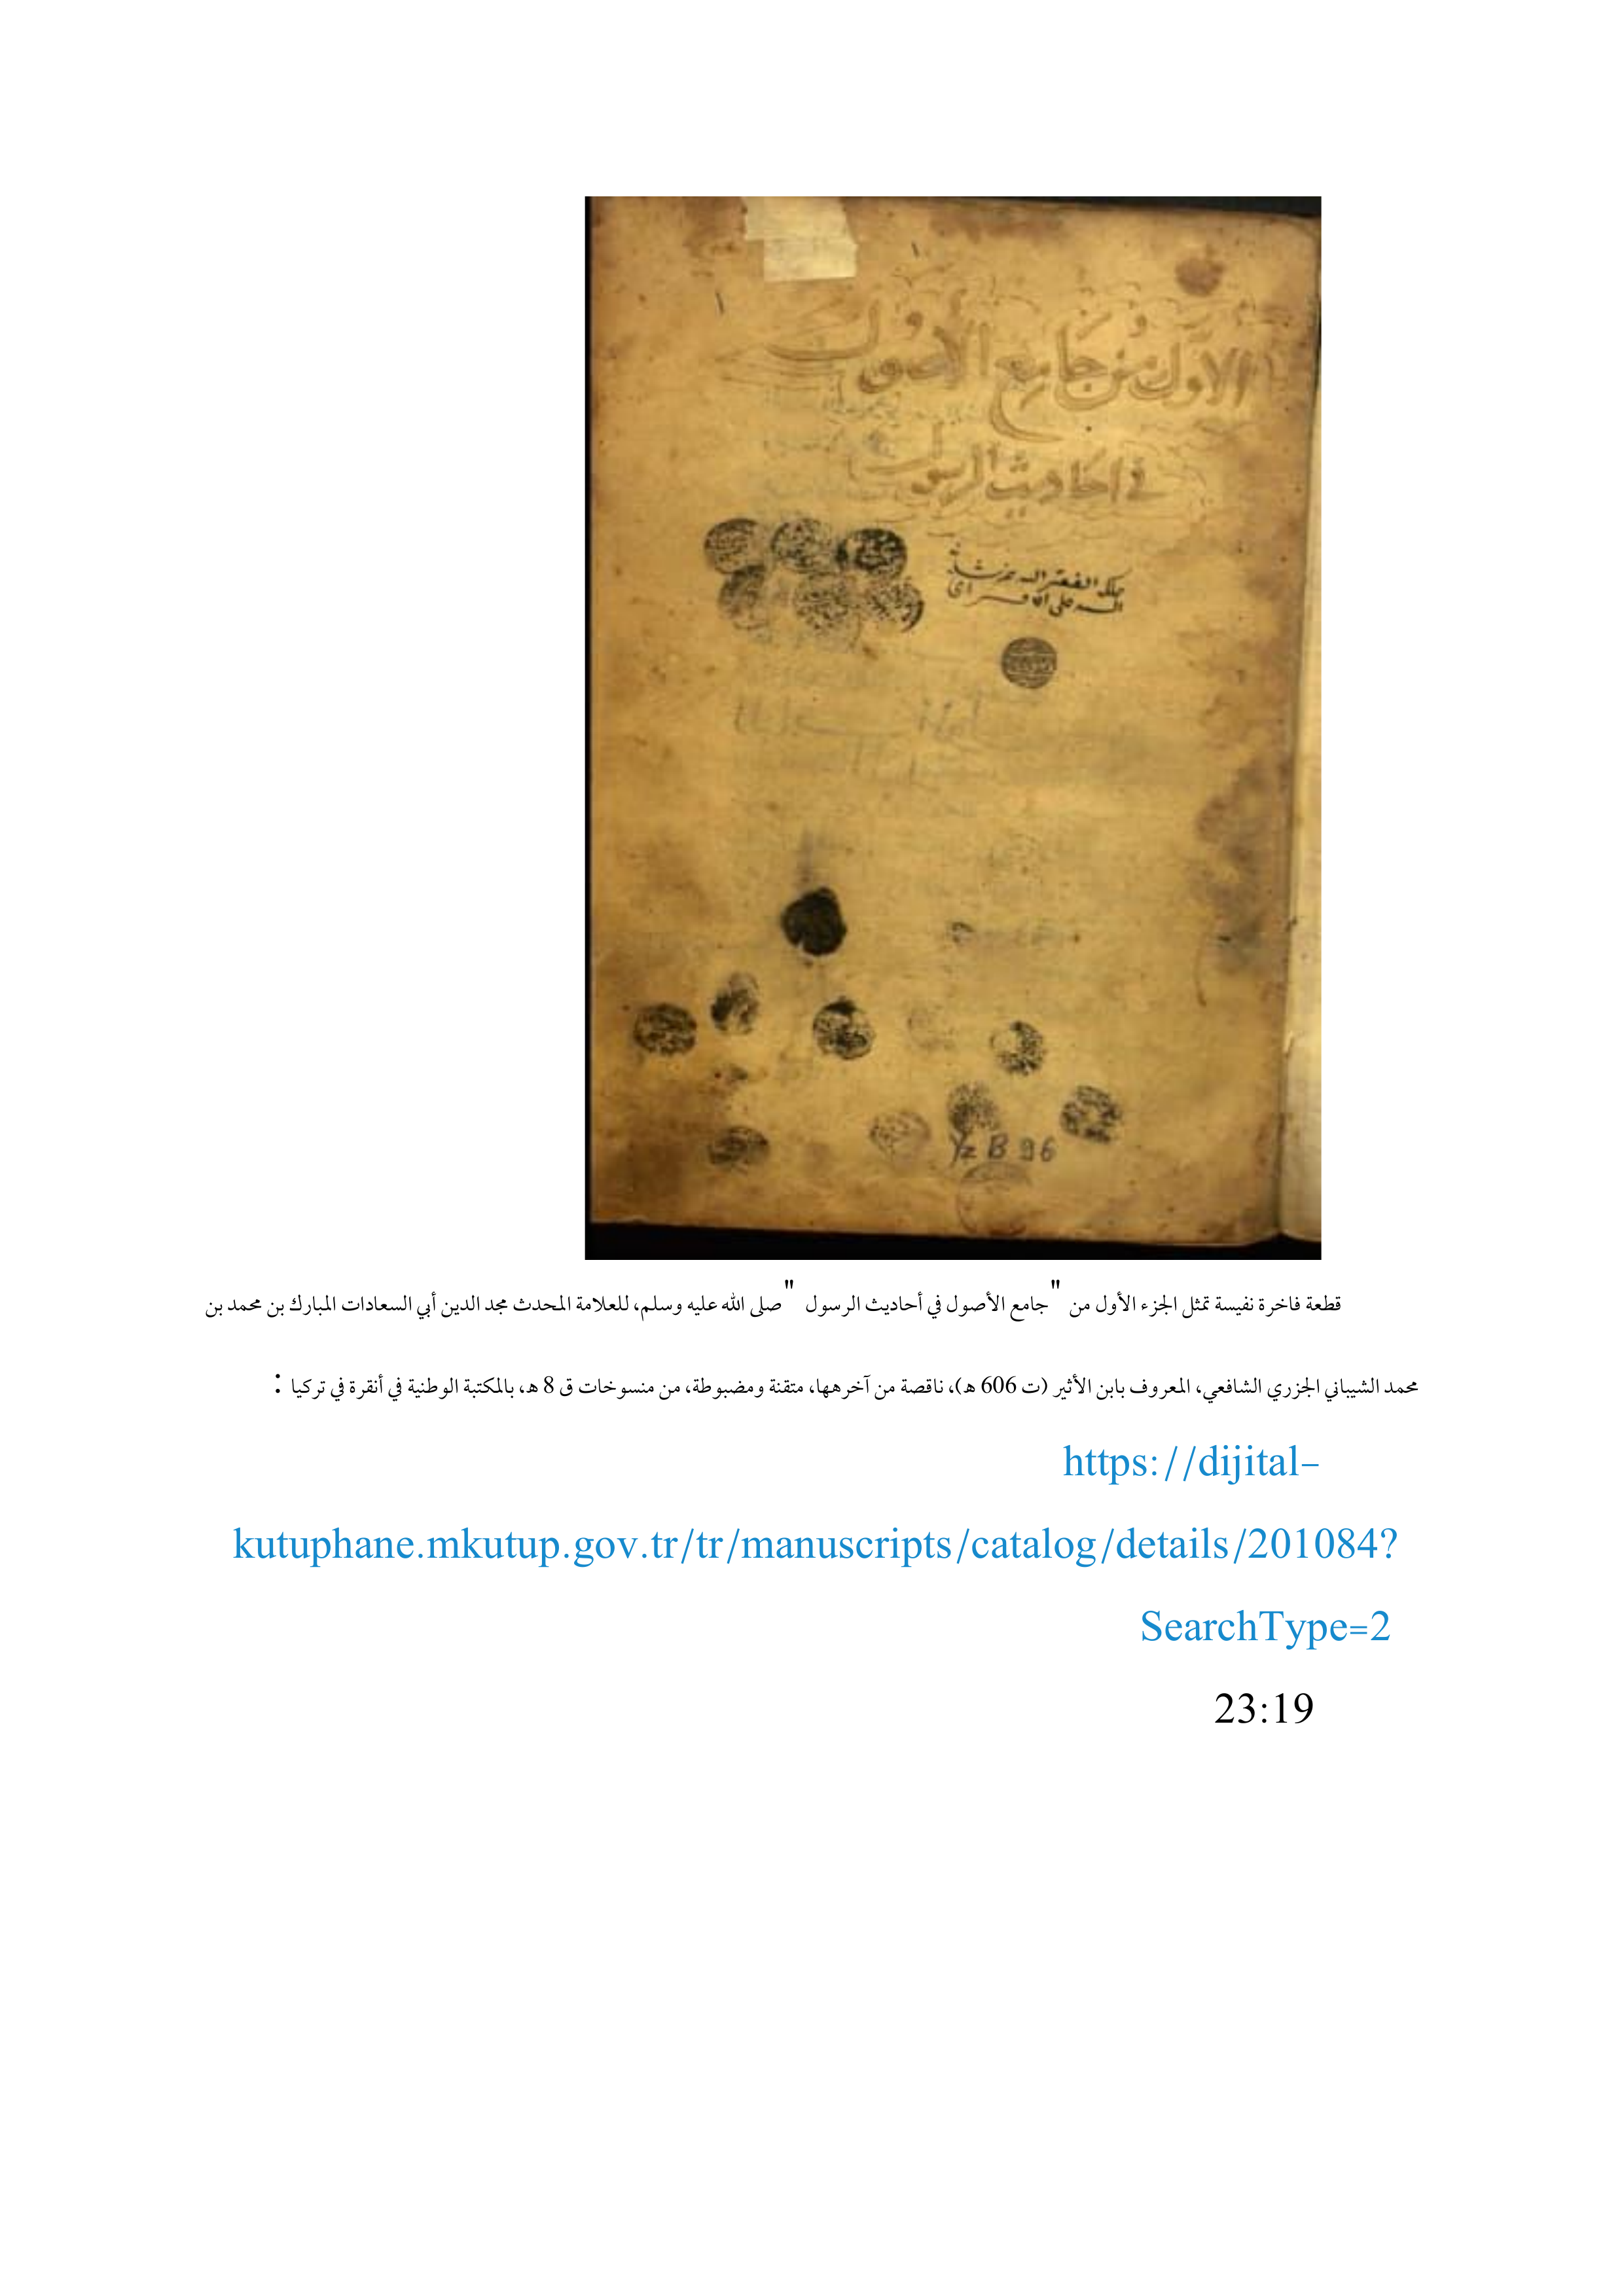 الأول من جامع الأصول
في أحاديث الرسول
Yz B 96
قطعة فاخرة نفيسة تمثل الجزء الأول من "جامع الأصول في أحاديث الرسول "صلى الله عليه وسلم، للعلامة المحدث مجد الدين أبي السعادات المبارك بن محمد بن
محمد الشيباني الجزري الشافعي، المعروف بابن الأثير (ت 606 هـ)، ناقصة من آخرهها، متقنة ومضبوطة، من منسوخات ق 8 هـ، بالمكتبة الوطنية في أنقرة في تركيا :
https://dijital-
kutuphane.mkutup.gov.tr/tr/manuscripts/catalog/details/201084?
SearchType=2
23:19